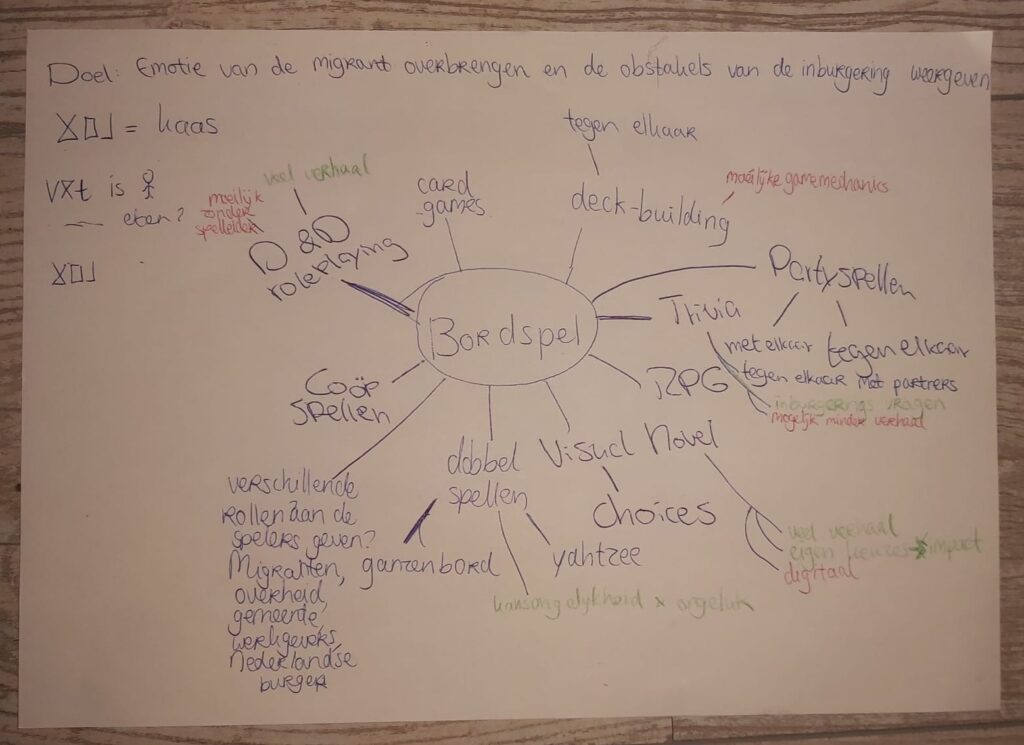 Doel: Emotie van de migrant overbrengen en de obstakels van de inburgering weergeven
= kaas
is
eten?
veel verhaal
moeilijk
zonder
spelleider
D&D
roleplaying
card
games
tegen elkaar
deck-building
moeilijke gamemechanics
Partyspellen
met elkaar
tegen elkaar
tegen elkaar met partners
Trivia
inburgerings vragen
mogelijk minder verhaal
Bordspel
RPG
Coöp
spellen
Visual Novel
choices
veel verhaal
eigen keuzes → impact
digitaal
dobbel
spellen
ganzenbord
yahtzee
kansongelijkheid x ongeluk
verschillende
rollen aan de
spelers geven?
Migranten,
overheid,
gemeente,
werkgevers,
Nederlandse
burger